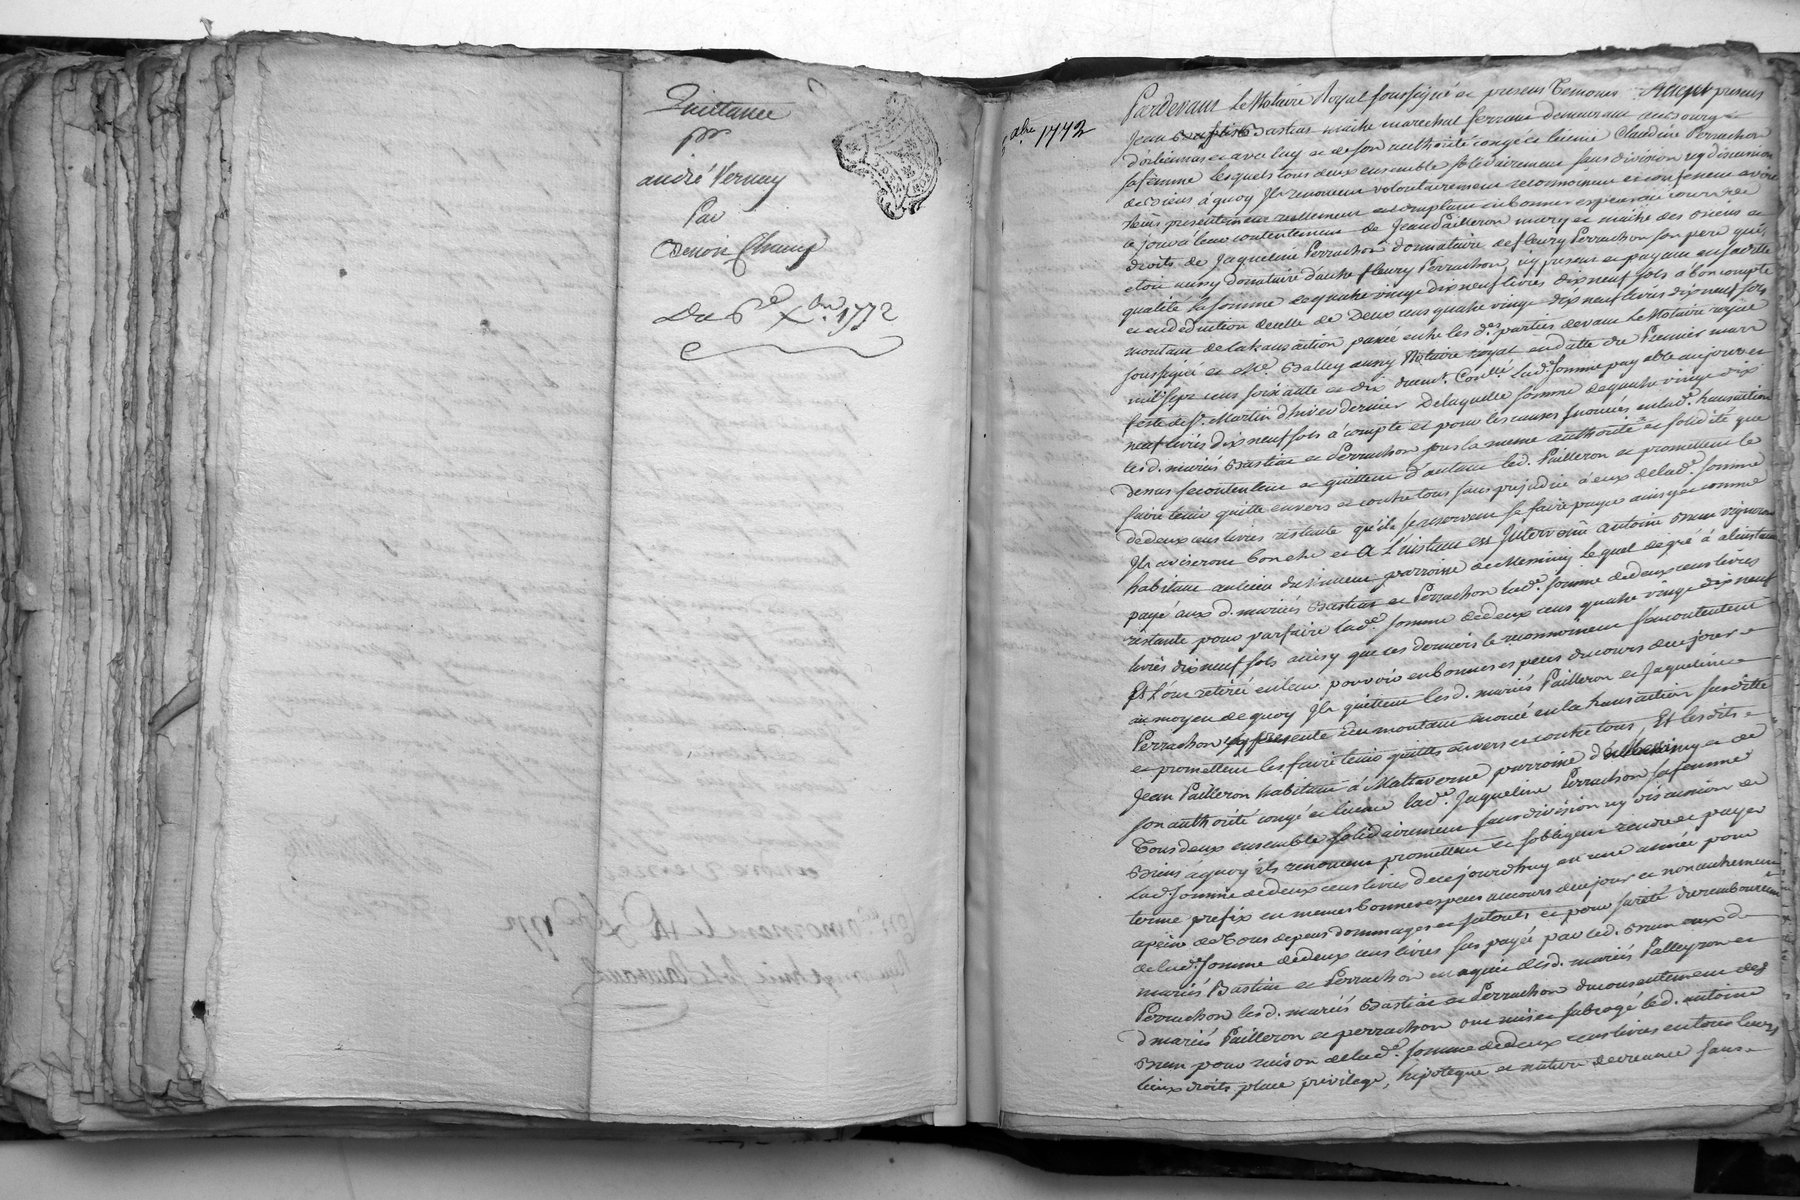 Quittance
pr
andré Vernay
Par
Benoit Champ
Du 6e Xbre 1772
xbre 1772
Pardevant Le Notaire Royal soussigné et presens Temoins furent presens
Jean Baptiste Bastias maitre marechal ferrant demeurant au bourg
d'orlienas et avec luy et de son authorité congé et licence Claudine Perrachon
sa femme lesquels tous deux ensemble solidairement sans division ny discussion
de biens à quoy Ils renoncent volontairement reconnoissent et confessent avoir
reçus presentement reellement et comptant en bonnes especes au cours de
ce jour à leur contentement de Jean Pailleron mary et maitre des biens et
droits de Jaqueline Perrachon donnataire de fleury Perrachon son pere qui
etoit aussy donataire d'autre fleury Perrachon, icy present et payant en ladite
qualité la somme de quatre vingt dix neuf livres dix neuf sols à bon compte
et en deduction de celle de Deux cens quatre vingt dix neuf livres dix neuf sols
montant de la transaction passée entre les des parties devant Le Notaire royal
soussigné et Me. Balley aussy Notaire royal en datte du Premier mars
mil sept cens soixante et dix duemt. Conllé. lad. somme payable au jour et
feste de St. Martin d'hiver dernier De laquelle somme de quatre vingt dix
neuf livres dix neuf sols à compte et pour les causes enoncées en lade. transaction
les d. mariés Bastias et Perrachon sous la meme authorité et solidité que
dessus se contentent et quittent d'autant led. Pailleron et promettent le
faire tenir quitte envers et contre tous sans prejudice à eux de lade. somme
de deux cens livres restante qu'ils se reservent se faire payer ainsy et comme
Ils aviseront bon etre et A L'instant est Intervenu antoine Brun vigneron
habitant au lieu du parroisse de Messimy le quel de gré à à l'instant
payé aux d. mariés Bastias et Perrachon lade. somme de deux cens livres
restante pour parfaire lade. somme de deux cens quatre vingt dix neuf
livres dix neuf sols ainsy que ces derniers le reconnoissent s'en contentent
Et l'ont retirée en leur pouvoir en bonnes especes du cours de ce jour et
au moyen de quoy Ils quittent lesd. mariés Pailleron et Jaqueline
Perrachon icy presente du montant enoncé en la transaction susditte
et promettent les faire tenir quittes envers et contre tous, Et les dits
Jean Pailleron habitant à Maltaverne parroisse de Messimy et de
son authorité congé et licence lade. Jaqueline Perrachon sa femme
Tous deux ensemble solidairement sans division ny discussion de
Biens à quoy ils renoncent promettent et s'obligent rendre et payer
lad. somme de deux cens livres de ce jourd'huy en une année pour
terme prefix en memes bonnes especes au cours de ce jour et non autrement
apeine de Tous depens dommages et interets et pour sureté du remboursemt
de lad. somme de deux cens livres sus payée par led. Brun aux d
mariés Bastias et Perrachon en aquit desd. mariés Palleyron et
Perrachon les d. mariés Bastias et Perrachon du consentement des
d mariés Pailleron et perrachon ont mis et subrogé led. antoine
Brun pour raison de lade. somme de deux cens livres en tous leurs
lieux droits place privilege, hipoteque et nature de creance sans